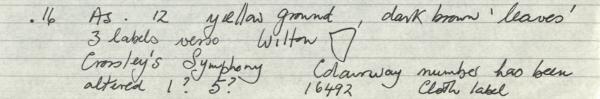 .16 As .12 yellow ground, dark brown 'leaves'
3 labels verso Wilton
Crossley's Symphony Colourway number has been
altered 1? 5? 16492 Cloth label